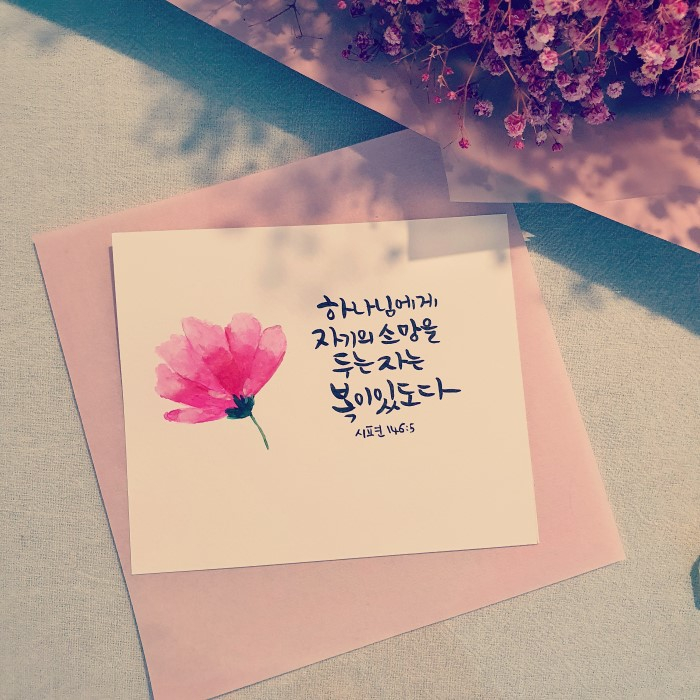 하나님에게
자기의 소망을
두는 자는
복이있도다
시편 146:5